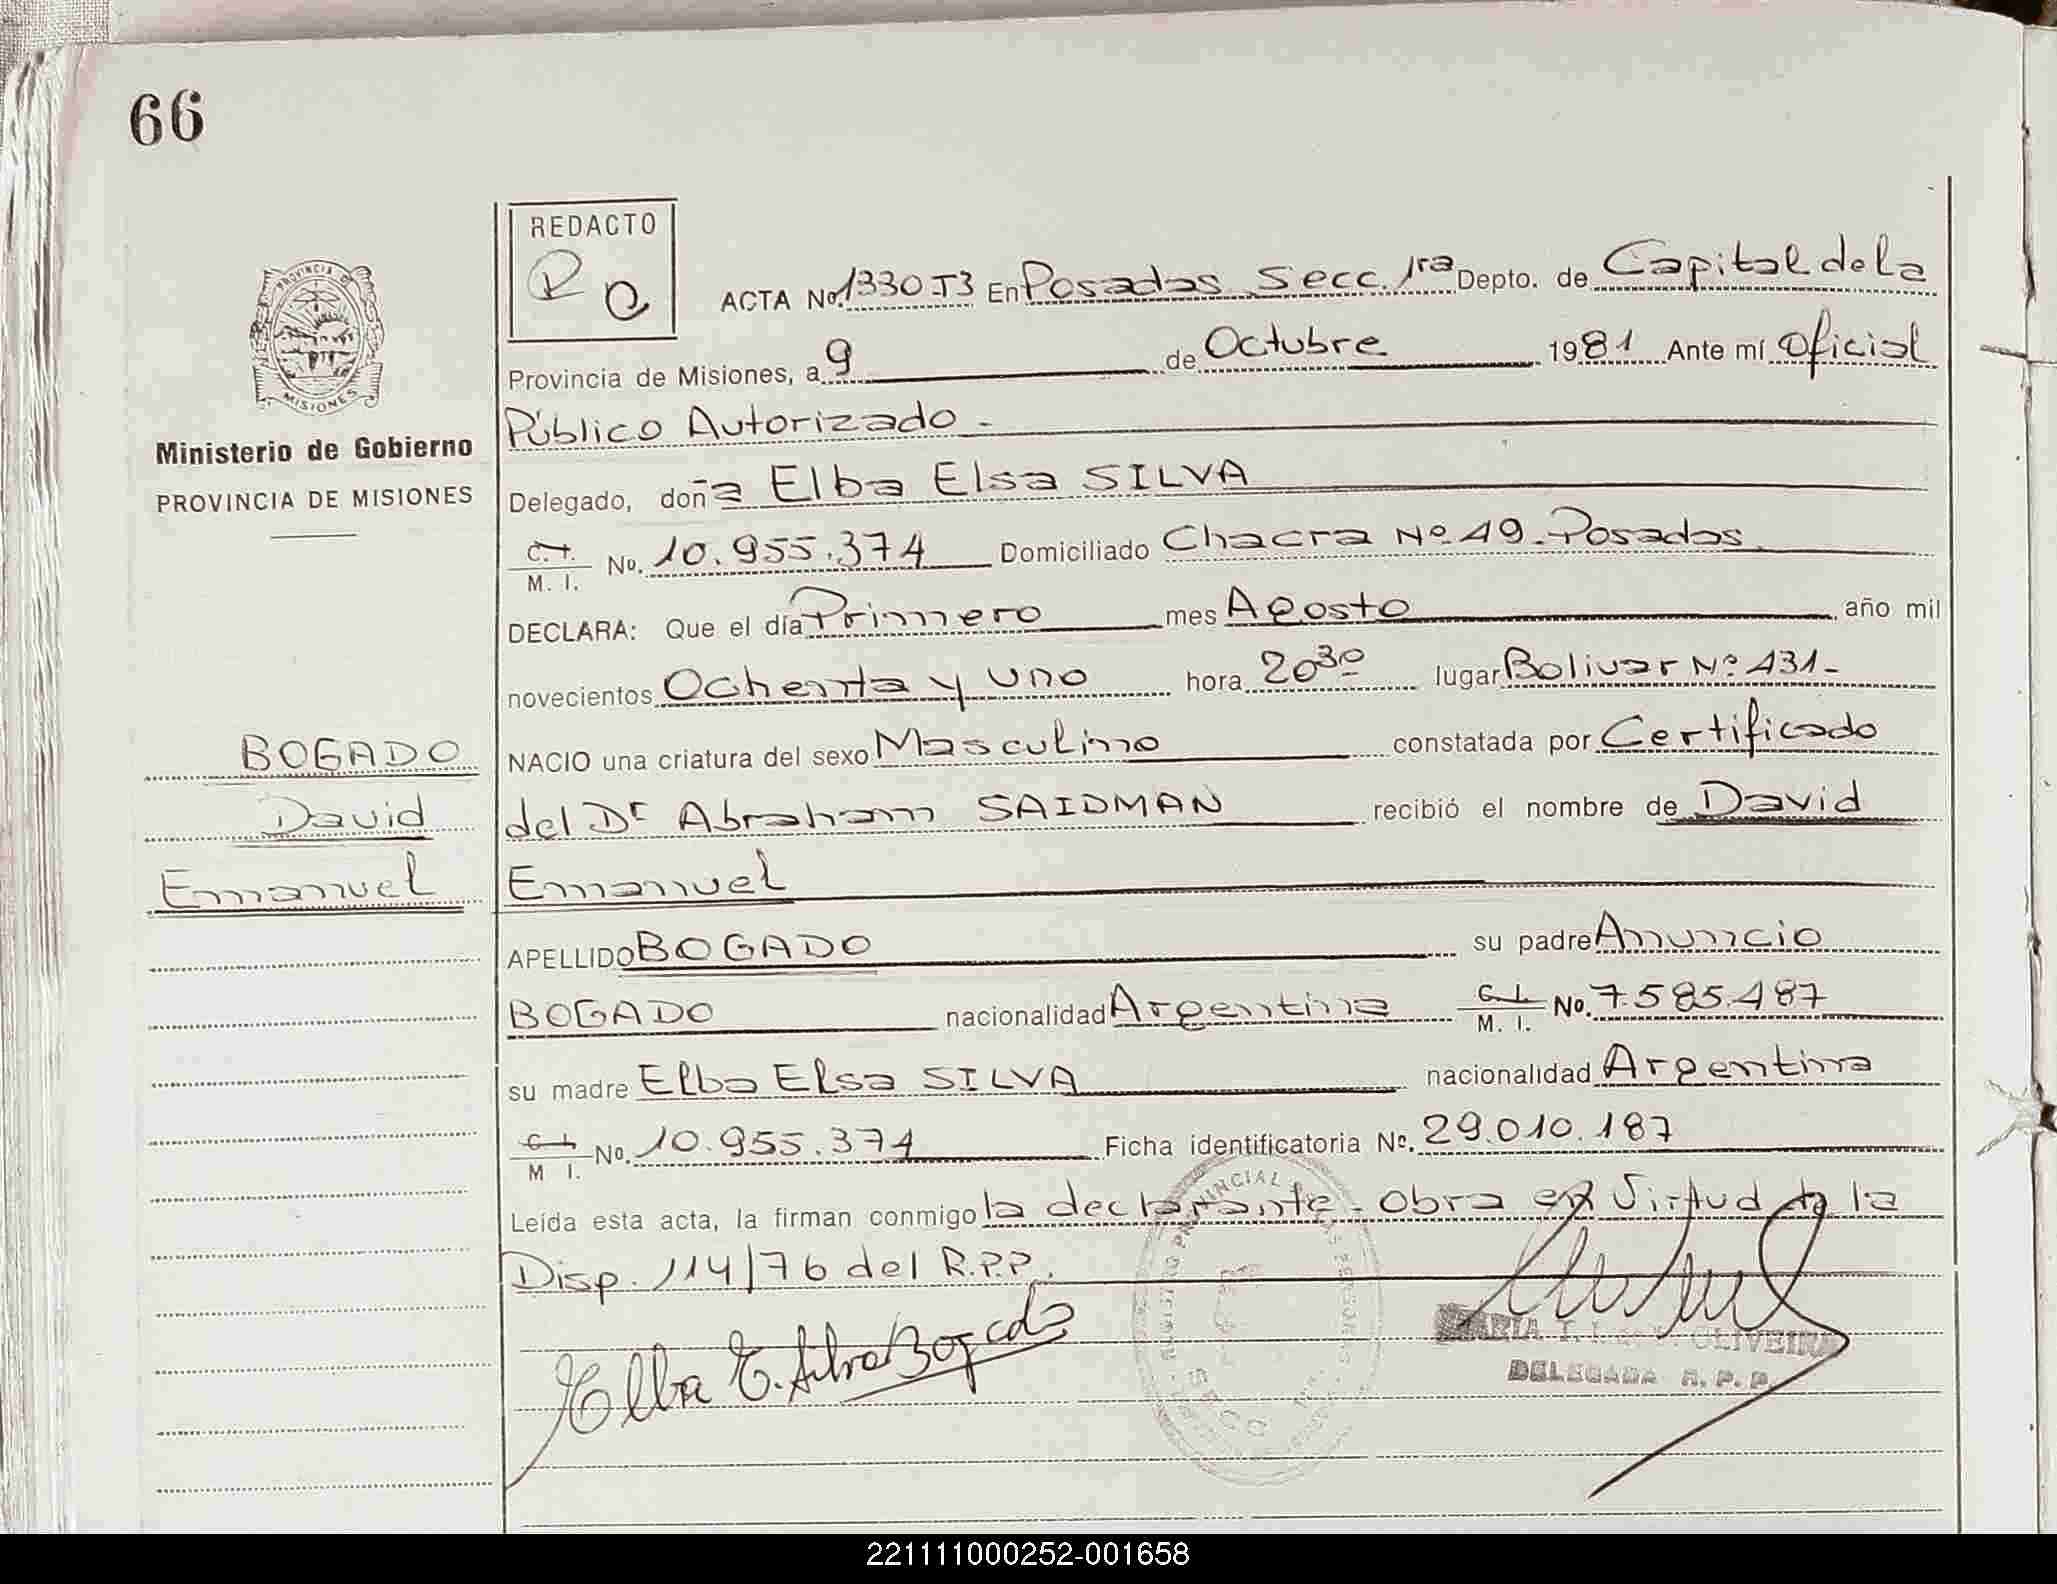 66
REDACTO
PROVINCIA DE
MISIONES
Ministerio de Gobierno
PROVINCIA DE MISIONES
BOGADO
David
Emanuel
ACTA No. 1330 T3 En Posadas Secc. 1ra Depto. de Capital de la
Provincia de Misiones, a 9 de Octubre 1981 Ante mí Oficial
Público Autorizado -
Delegado, doña Elba Elsa SILVA
C. I. M. I. No. 10.955.374 Domiciliado Chacra Nº 49. Posadas
DECLARA: Que el día Primero mes Agosto año mil
novecientos Ochenta y uno hora 20 30 lugar Bolivar Nº 431-
NACIO una criatura del sexo Masculino constatada por Certificado
del Dr Abraham SAIDMAN recibió el nombre de David
Emanuel
APELLIDO BOGADO su padre Anuncio
BOGADO nacionalidad Argentina C. I. M. I. No. 7.585.487
su madre Elba Elsa SILVA nacionalidad Argentina
C. I. M I. No. 10.955.374 Ficha identificatoria Nº. 29.010.187
Leída esta acta, la firman conmigo la declarante - Obra en Virtud de la
Disp. 114/76 del R.P.P.
Elba E. Silva Bogado
OLIVEIRA
DELEGADA R. P. P.
221111000252-001658